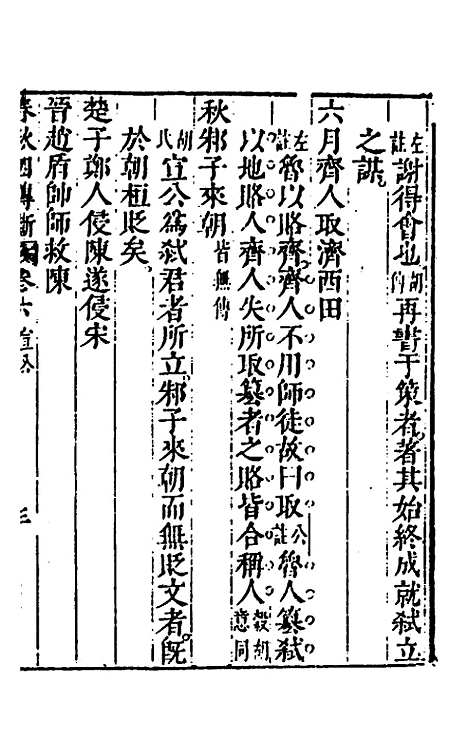 左註謝得會也胡傳再書于策者著其始終成就弑立
之謀
六月齊人取濟西田
左註魯以賂齊齊人不用師徒故曰取公註魯人篡弑
以地賂人齊人失所取篡者之賂皆合稱人穀胡意同
秋邾子來朝皆無傳
胡氏宣公爲弑君者所立邾子來朝而無貶文者既
於朝桓貶矣
楚子鄭人侵陳遂侵宋
晉趙盾帥師救陳
春秋四傳斷 卷六 宣公 三